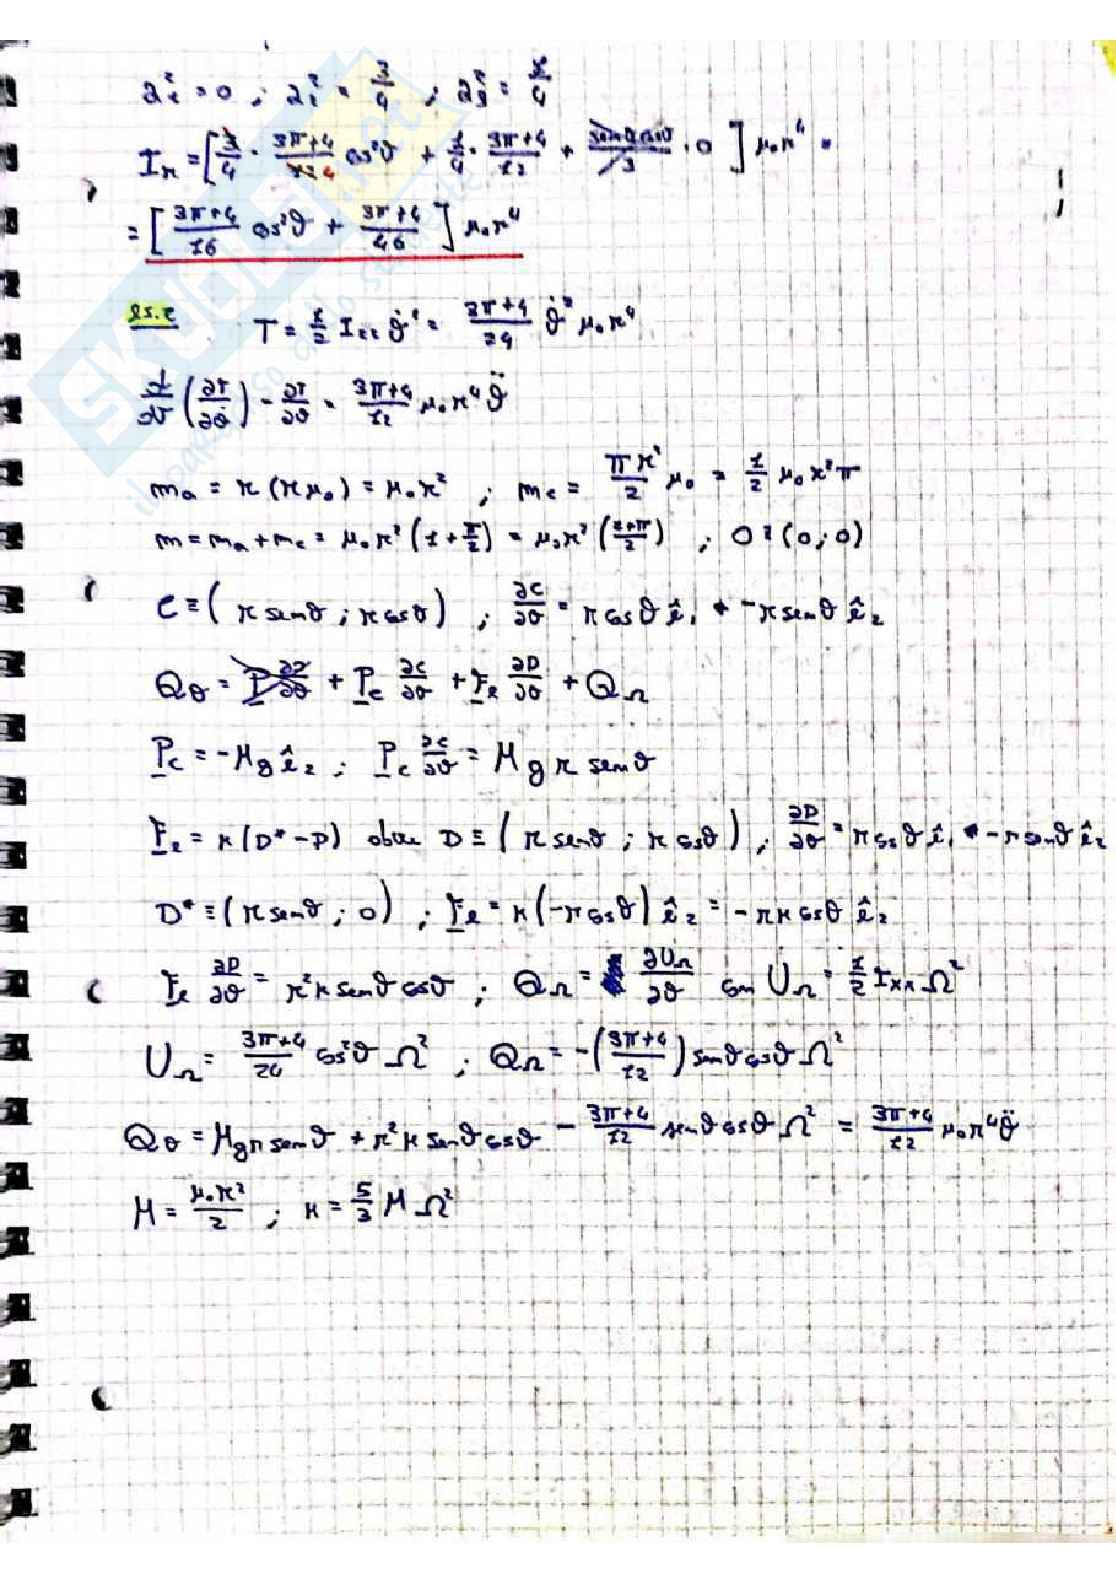 a₁² = 0 ; a₂² = 3/4 ; a₃² = 1/4
Iₙ = [3/4 · (3π+4)/12 cos²ϑ + 1/4 · (3π+4)/12 + · 0] μ₀r⁴ =
= [(3π+4)/16 cos²ϑ + (3π+4)/46] μ₀r⁴
es. 2 T = 1/2 I₂₂ ϑ̇² = (3π+4)/24 ϑ̇² μ₀r⁴
d/dt (∂T/∂ϑ̇) - ∂T/∂ϑ = (3π+4)/12 μ₀r⁴ ϑ̈
mₐ = r(rμ₀) = μ₀r² ; m_c = πr²/2 μ₀ = 1/2 μ₀r²π
m = mₐ + m_c = μ₀r² (1 + π/2) = μ₀r² ((2+π)/2) ; O ≡ (0;0)
C ≡ (r senϑ ; r cosϑ) ; ∂C/∂ϑ = r cosϑ ê₁ + -r senϑ ê₂
Q_ϑ = + P_c ∂C/∂ϑ + F_e ∂D/∂ϑ + Q_Ω
P_c = -Mg ê₂ ; P_c ∂C/∂ϑ = Mgr senϑ
F_e = k(D* - D) dove D ≡ (r senϑ ; r cosϑ) ; ∂D/∂ϑ = r cosϑ ê₁ + -r senϑ ê₂
D* ≡ (r senϑ ; 0) ; F_e = k(-r cosϑ) ê₂ = -rk cosϑ ê₂
F_e ∂D/∂ϑ = r²k senϑ cosϑ ; Q_Ω = ∂U_Ω/∂ϑ con U_Ω = 1/2 Iₓₓ Ω²
U_Ω = (3π+4)/24 cos²ϑ Ω² ; Q_Ω = -((3π+4)/12) senϑ cosϑ Ω²
Q_ϑ = Mgr senϑ + r²k senϑ cosϑ - (3π+4)/12 senϑ cosϑ Ω² = (3π+4)/12 μ₀r⁴ ϑ̈
M = μ₀r²/2 ; k = 5/3 M Ω²